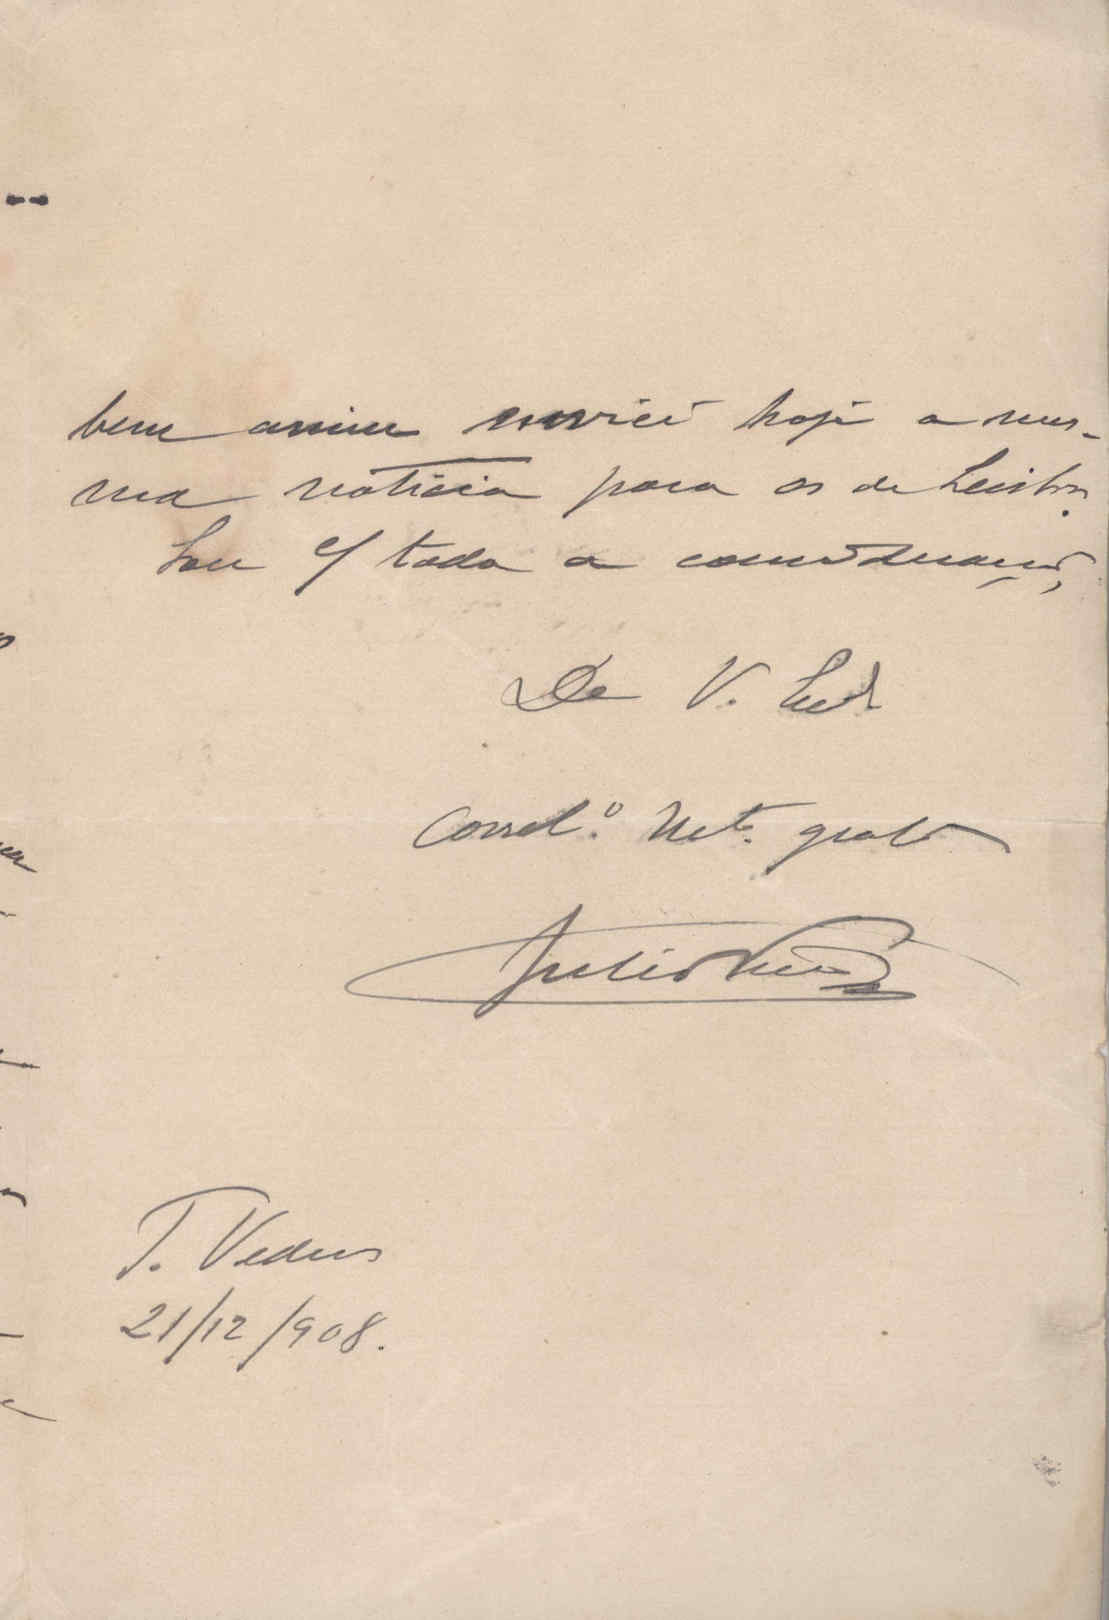 bem assim enviei hoje a mes-
ma noticia para os de Lisboa.
Sou c/ toda a consideração,
De V.
grato
Julio
T. Vedras
21/12/908.